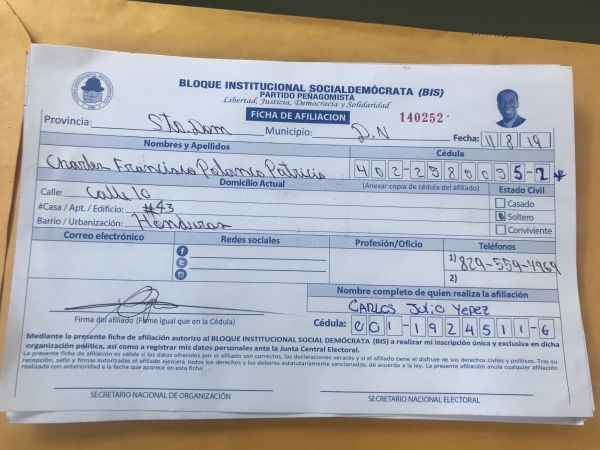 BLOQUE INSTITUCIONAL SOCIALDEMÓCRATA (BIS)
PARTIDO PEÑAGOMISTA
Libertad, Justicia, Democracia y Solidaridad
FICHA DE AFILIACION 140252
Provincia: Sto. Dom Municipio: D.N Fecha: 11/8/19
Nombres y Apellidos Cédula
Charles Francisco Polanco Patricio 402-2380095-2
Domicilio Actual (Anexar copia de cédula del afiliado) Estado Civil
Calle: Calle 10 Casado
#Casa / Apt. / Edificio: #43 Soltero
Barrio / Urbanización: Honduras Conviviente
Correo electrónico Redes sociales Profesión/Oficio Teléfonos
1) 829-559-4969
2)
Nombre completo de quien realiza la afiliación
CARLOS Julio Yepez
Firma del afiliado (Firme igual que en la Cédula) Cédula: 001-1924511-6
Mediante la presente ficha de afiliación autorizo al BLOQUE INSTITUCIONAL SOCIAL DEMÓCRATA (BIS) a realizar mi inscripción única y exclusiva en dicha
organización política, así como a registrar mis datos personales ante la Junta Central Electoral.
La presente ficha de afiliación es válida si los datos ofrecidos por el afiliado son correctos, las declaraciones veraces y si el afiliado tiene el disfrute de sus derechos civiles y políticos. Tras su
recepción, sello y firmas autorizadas el afiliado ejercerá todos los derechos y los deberes estatutariamente sancionados, de acuerdo a la ley. La presente afiliación anula cualquier afiliación
realizada con anterioridad a la fecha que aparece en esta ficha.
SECRETARIO NACIONAL DE ORGANIZACIÓN SECRETARIO NACIONAL ELECTORAL